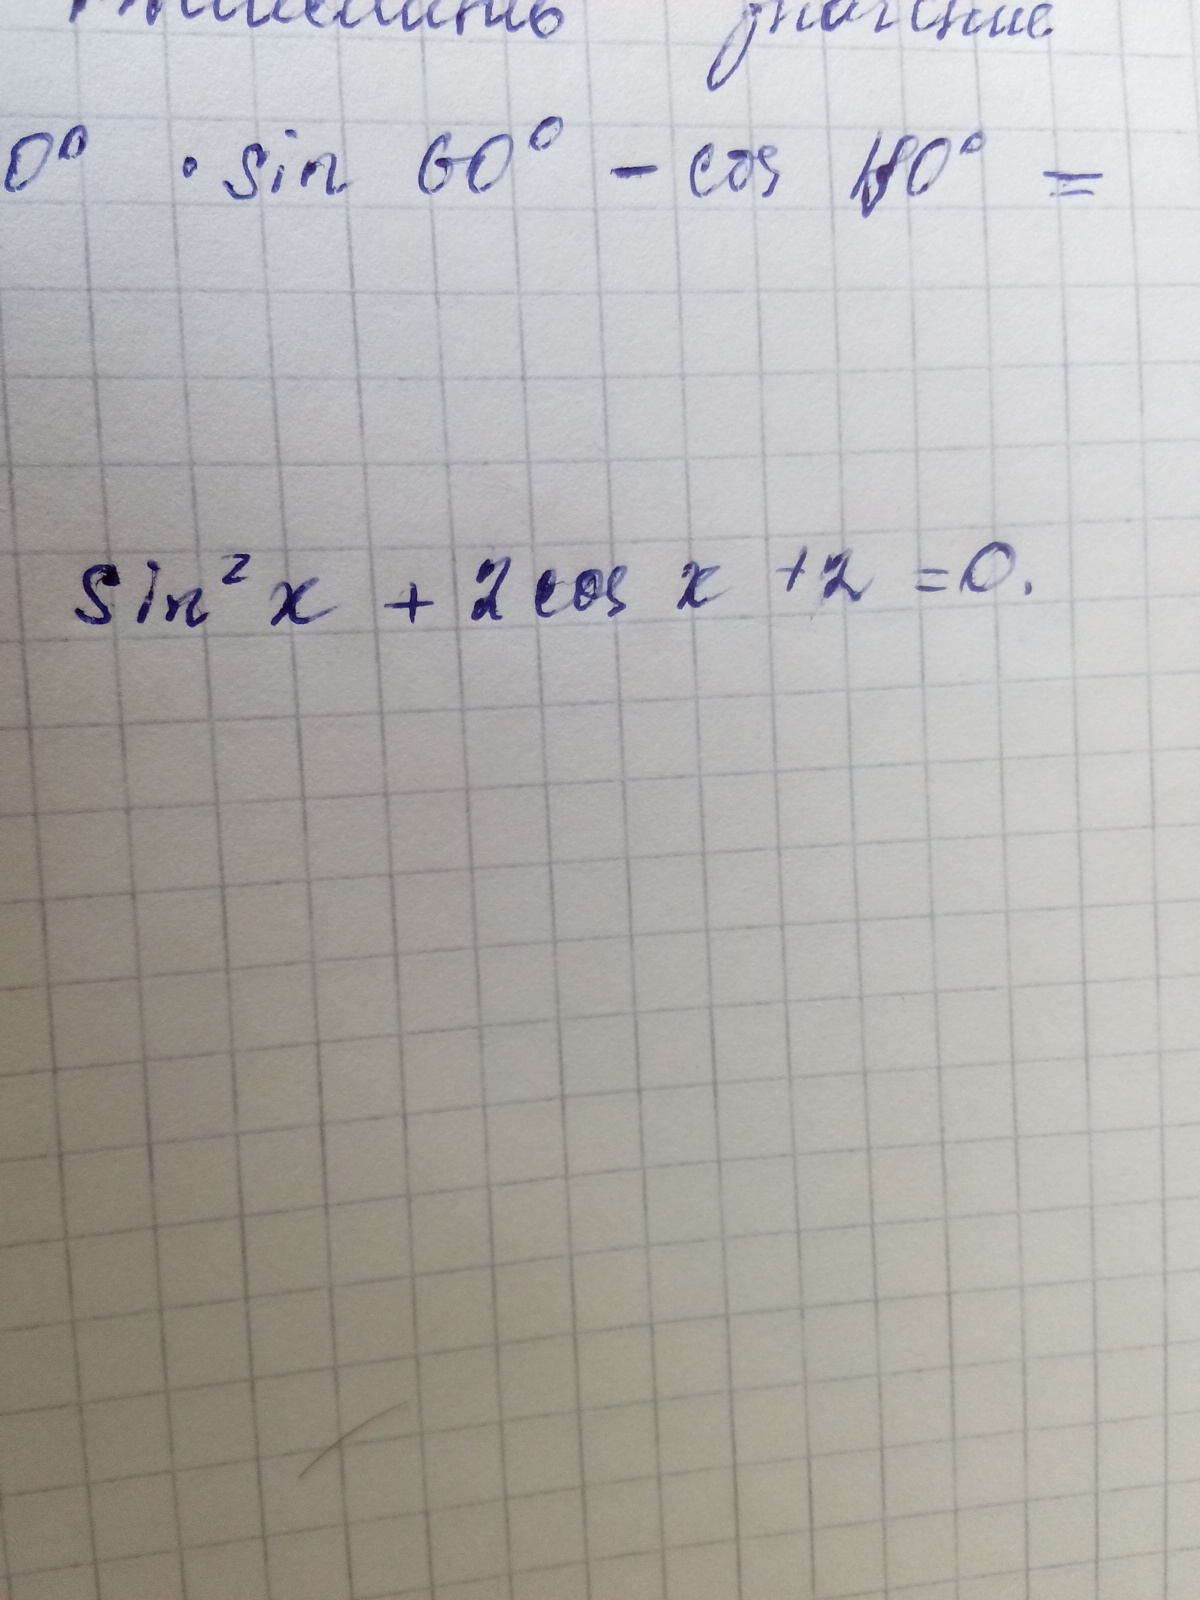 значение
0° · sin 60° - cos 180° =
sin² x + 2 cos x + 2 = 0.